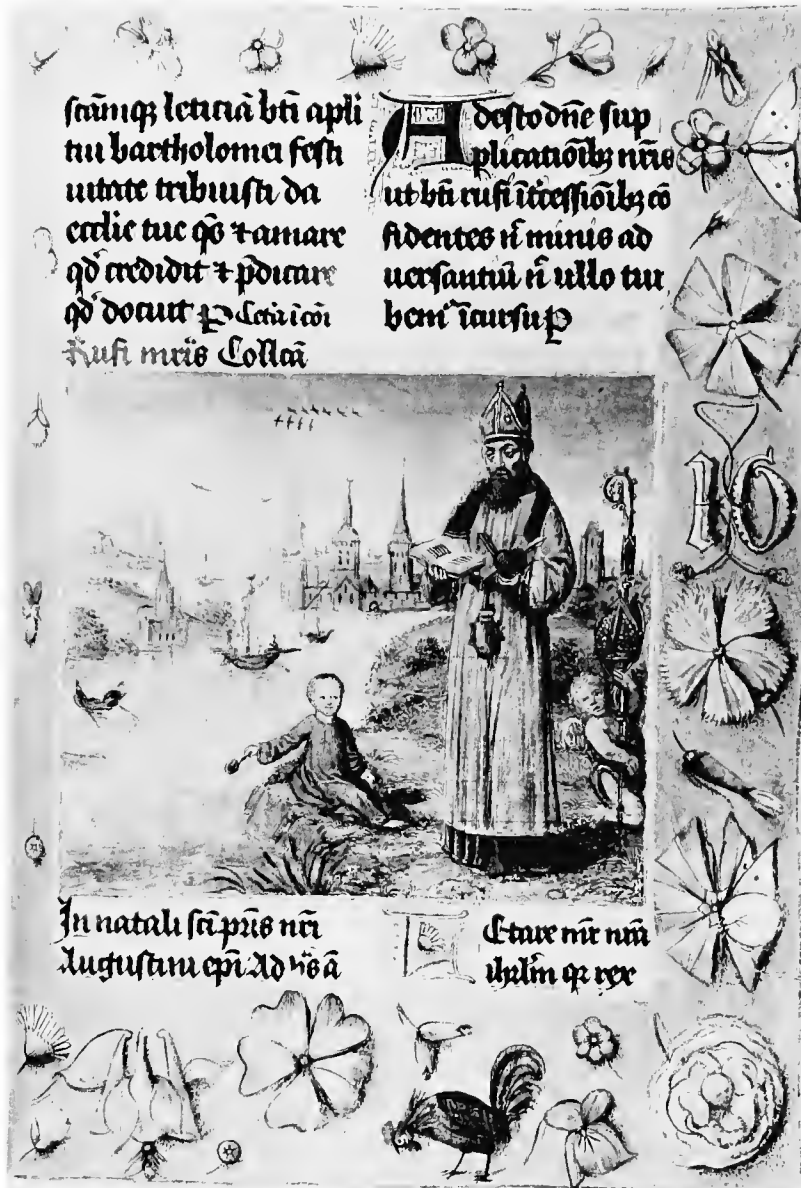 scāmqȝ leticiā bti apli
tui bartholomei festi
uitate tribuisti da
ecclie tue qs̄ ⁊ amare
qd̓ credidit ⁊ p̄dicare
qd̓ docuit P
Rufi mr̄is Collcā
Adesto dn̄e sup
plicatiōibȝ nr̄is
ut bti rufi ītcessiōibȝ cō
fidentes n̄ minis ad
uersantiū n̄ ullo tur
bem᷒ īcursu P
16
In natali sc̄i pr̄is nr̄i
Augustini ep̄i Ad
Letare mr̄ nr̄ā
ihrl̄m qȝ rex